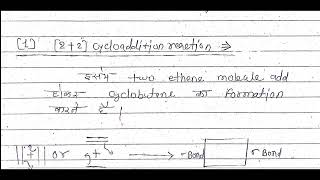 [1] [2+2] cycloaddition reaction ⇒
इसमे two ethene molecule add
होकर cyclobutene का formation
करते है |
|| + || or = + = → r Bond r Bond